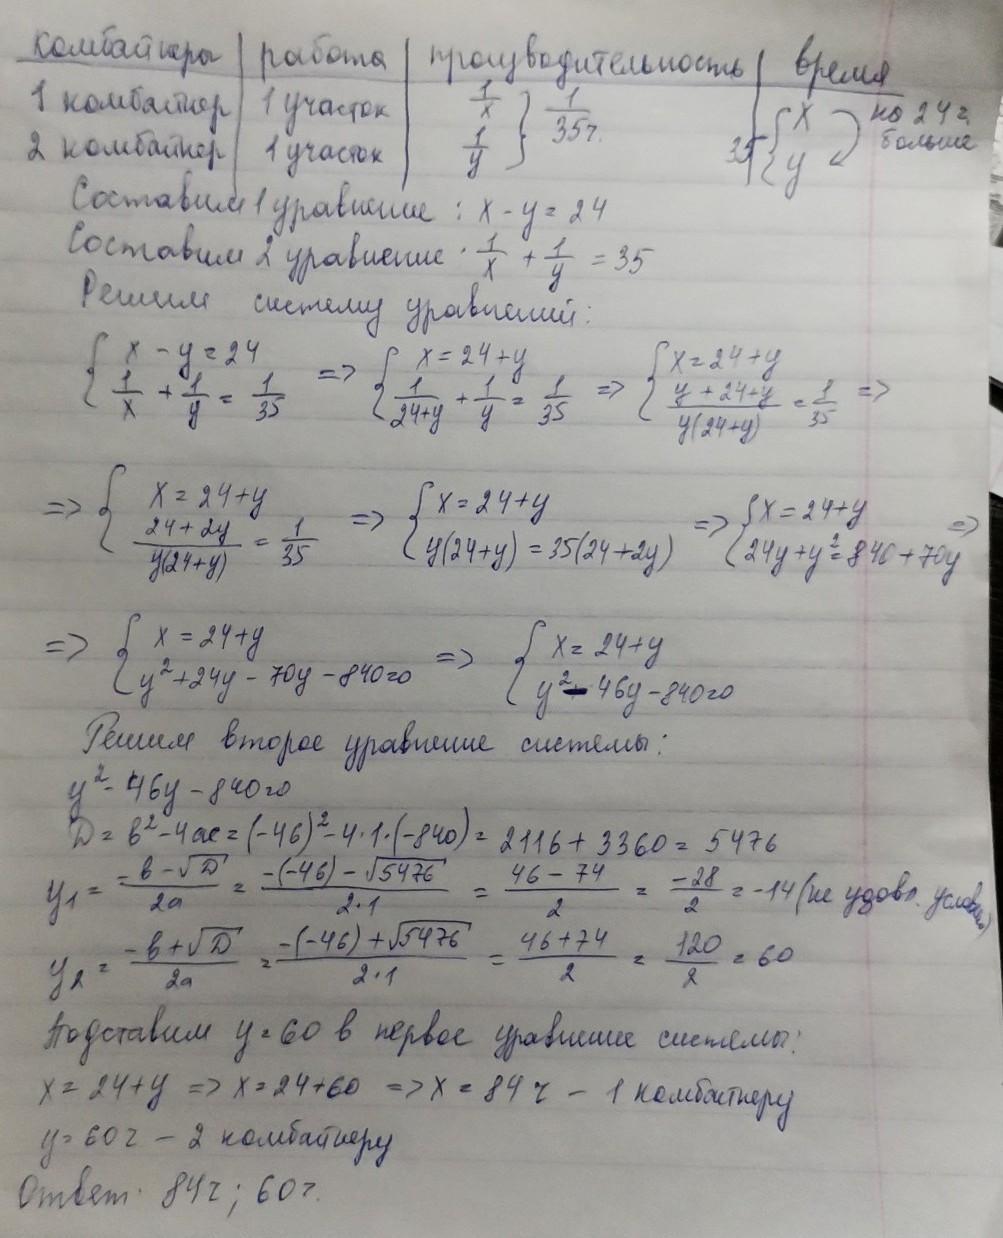 комбайнеры | работа | производительность | время
1 комбайнер | 1 участок | 1/x } 1/35ч. | { x на 24 ч.
2 комбайнер | 1 участок | 1/y | 35 { y больше
Составим 1 уравнение : x - y = 24
Составим 2 уравнение · 1/x + 1/y = 35
Решим систему уравнений:
{ x - y = 24 ; 1/x + 1/y = 1/35 => { x = 24+y ; 1/(24+y) + 1/y = 1/35 => { x = 24+y ; (y + 24+y)/(y(24+y)) = 1/35 =>
=> { x = 24+y ; (24+2y)/(y(24+y)) = 1/35 => { x = 24+y ; y(24+y) = 35(24+2y) => { x = 24+y ; 24y+y² = 840+70y =>
=> { x = 24+y ; y²+24y - 70y - 840=0 => { x = 24+y ; y² - 46y - 840=0
Решим второе уравнение системы:
y² - 46y - 840=0
D = b² - 4ac = (-46)² - 4·1·(-840) = 2116 + 3360 = 5476
y₁ = (-b - √D)/2a = (-(-46) - √5476)/(2·1) = (46 - 74)/2 = -28/2 = -14 (не удовл. условию)
y₂ = (-b + √D)/2a = (-(-46) + √5476)/(2·1) = (46+74)/2 = 120/2 = 60
Подставим y = 60 в первое уравнение системы:
x = 24+y => x = 24+60 => x = 84 ч - 1 комбайнеру
y = 60 ч - 2 комбайнеру
Ответ· 84ч ; 60ч.